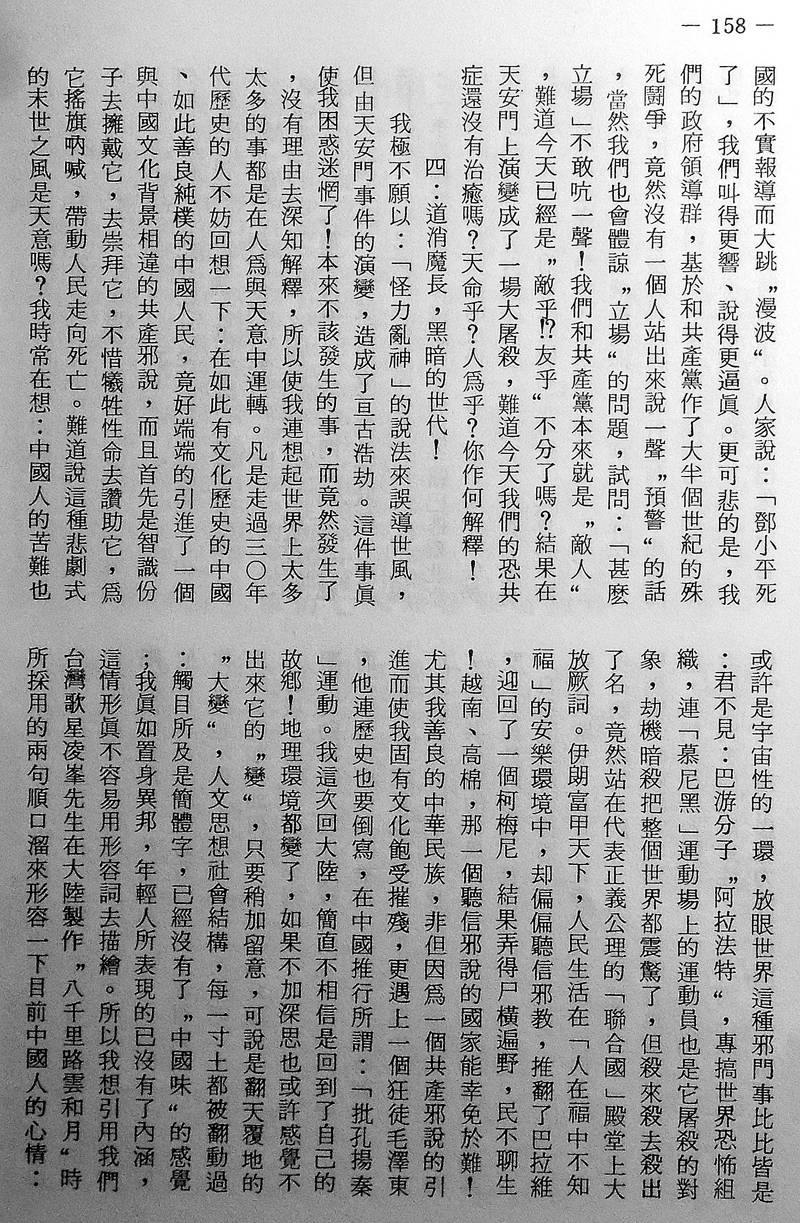 — 158 —
國的不實報導而大跳〝漫波〞。人家說：「鄧小平死
了」，我們叫得更響、說得更逼眞。更可悲的是，我
們的政府領導群，基於和共產黨作了大半個世紀的殊
死鬪爭，竟然沒有一個人站出來說一聲〝預警〞的話
，當然我們也會體諒〝立場〞的問題，試問：「甚麼
立場」不敢吭一聲！我們和共產黨本來就是〝敵人〞
，難道今天已經是〝敵乎!?友乎〞不分了嗎？結果在
天安門上演變成了一場大屠殺，難道今天我們的恐共
症還沒有治癒嗎？天命乎？人爲乎？你作何解釋！
四：道消魔長，黑暗的世代！
我極不願以：「怪力亂神」的說法來誤導世風，
但由天安門事件的演變，造成了亘古浩劫。這件事眞
使我困惑迷惘了！本來不該發生的事，而竟然發生了
，沒有理由去深知解釋，所以使我連想起世界上太多
太多的事都是在人爲與天意中運轉。凡是走過三〇年
代歷史的人不妨回想一下：在如此有文化歷史的中國
、如此善良純樸的中國人民，竟好端端的引進了一個
與中國文化背景相違的共產邪說，而且首先是智識份
子去擁戴它，去崇拜它，不惜犧牲性命去讚助它，爲
它搖旗吶喊，帶動人民走向死亡。難道說這種悲劇式
的末世之風是天意嗎？我時常在想：中國人的苦難也
或許是宇宙性的一環，放眼世界這種邪門事比比皆是
：君不見：巴游分子〝阿拉法特〞，專搞世界恐怖組
織，連「慕尼黑」運動場上的運動員也是它屠殺的對
象，劫機暗殺把整個世界都震驚了，但殺來殺去殺出
了名，竟然站在代表正義公理的「聯合國」殿堂上大
放厥詞。伊朗富甲天下，人民生活在「人在福中不知
福」的安樂環境中，却偏偏聽信邪教，推翻了巴拉維
，迎回了一個柯梅尼，結果弄得尸橫遍野，民不聊生
！越南、高棉，那一個聽信邪說的國家能幸免於難！
尤其我善良的中華民族，非但因爲一個共產邪說的引
進而使我固有文化飽受摧殘，更遇上一個狂徒毛澤東
，他連歷史也要倒寫，在中國推行所謂：「批孔揚秦
」運動。我這次回大陸，簡直不相信是回到了自己的
故鄉！地理環境都變了，如果不加深思也或許感覺不
出來它的〝變〞，只要稍加留意，可說是翻天覆地的
〝大變〞，人文思想社會結構，每一寸土都被翻動過
：觸目所及是簡體字，已經沒有了〝中國味〞的感覺
；我眞如置身異邦，年輕人所表現的已沒有了內涵，
這情形眞不容易用形容詞去描繪。所以我想引用我們
台灣歌星凌峯先生在大陸製作〝八千里路雲和月〞時
所採用的兩句順口溜來形容一下目前中國人的心情：